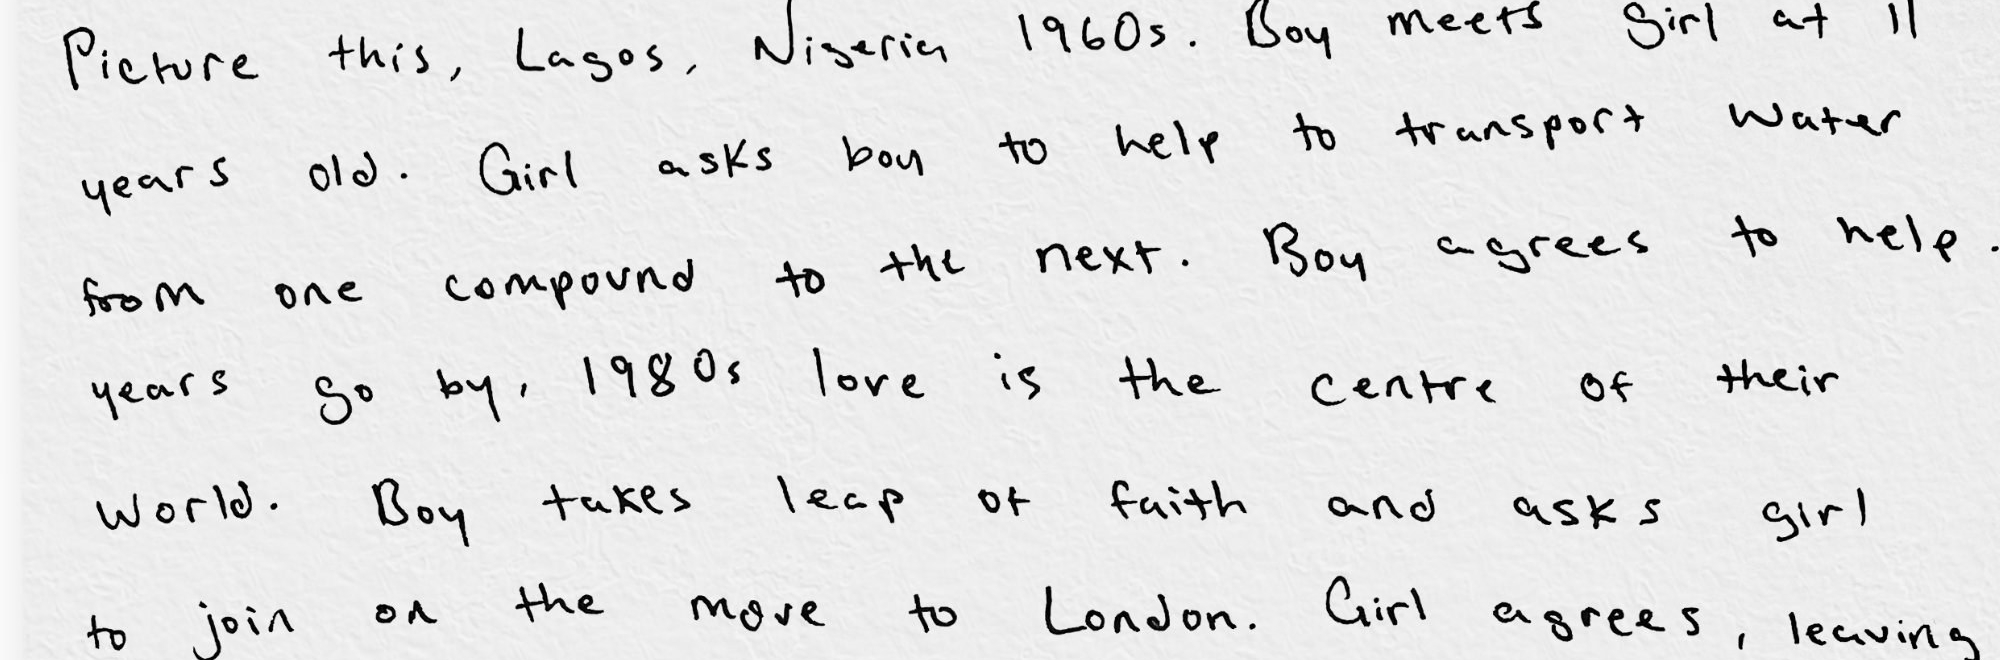 Picture this, Lagos, Nigeria 1960s. Boy meets girl at 11
years old. Girl asks boy to help to transport water
from one compound to the next. Boy agrees to help.
years go by, 1980s love is the centre of their
world. Boy takes leap of faith and asks girl
to join on the move to London. Girl agrees, leaving